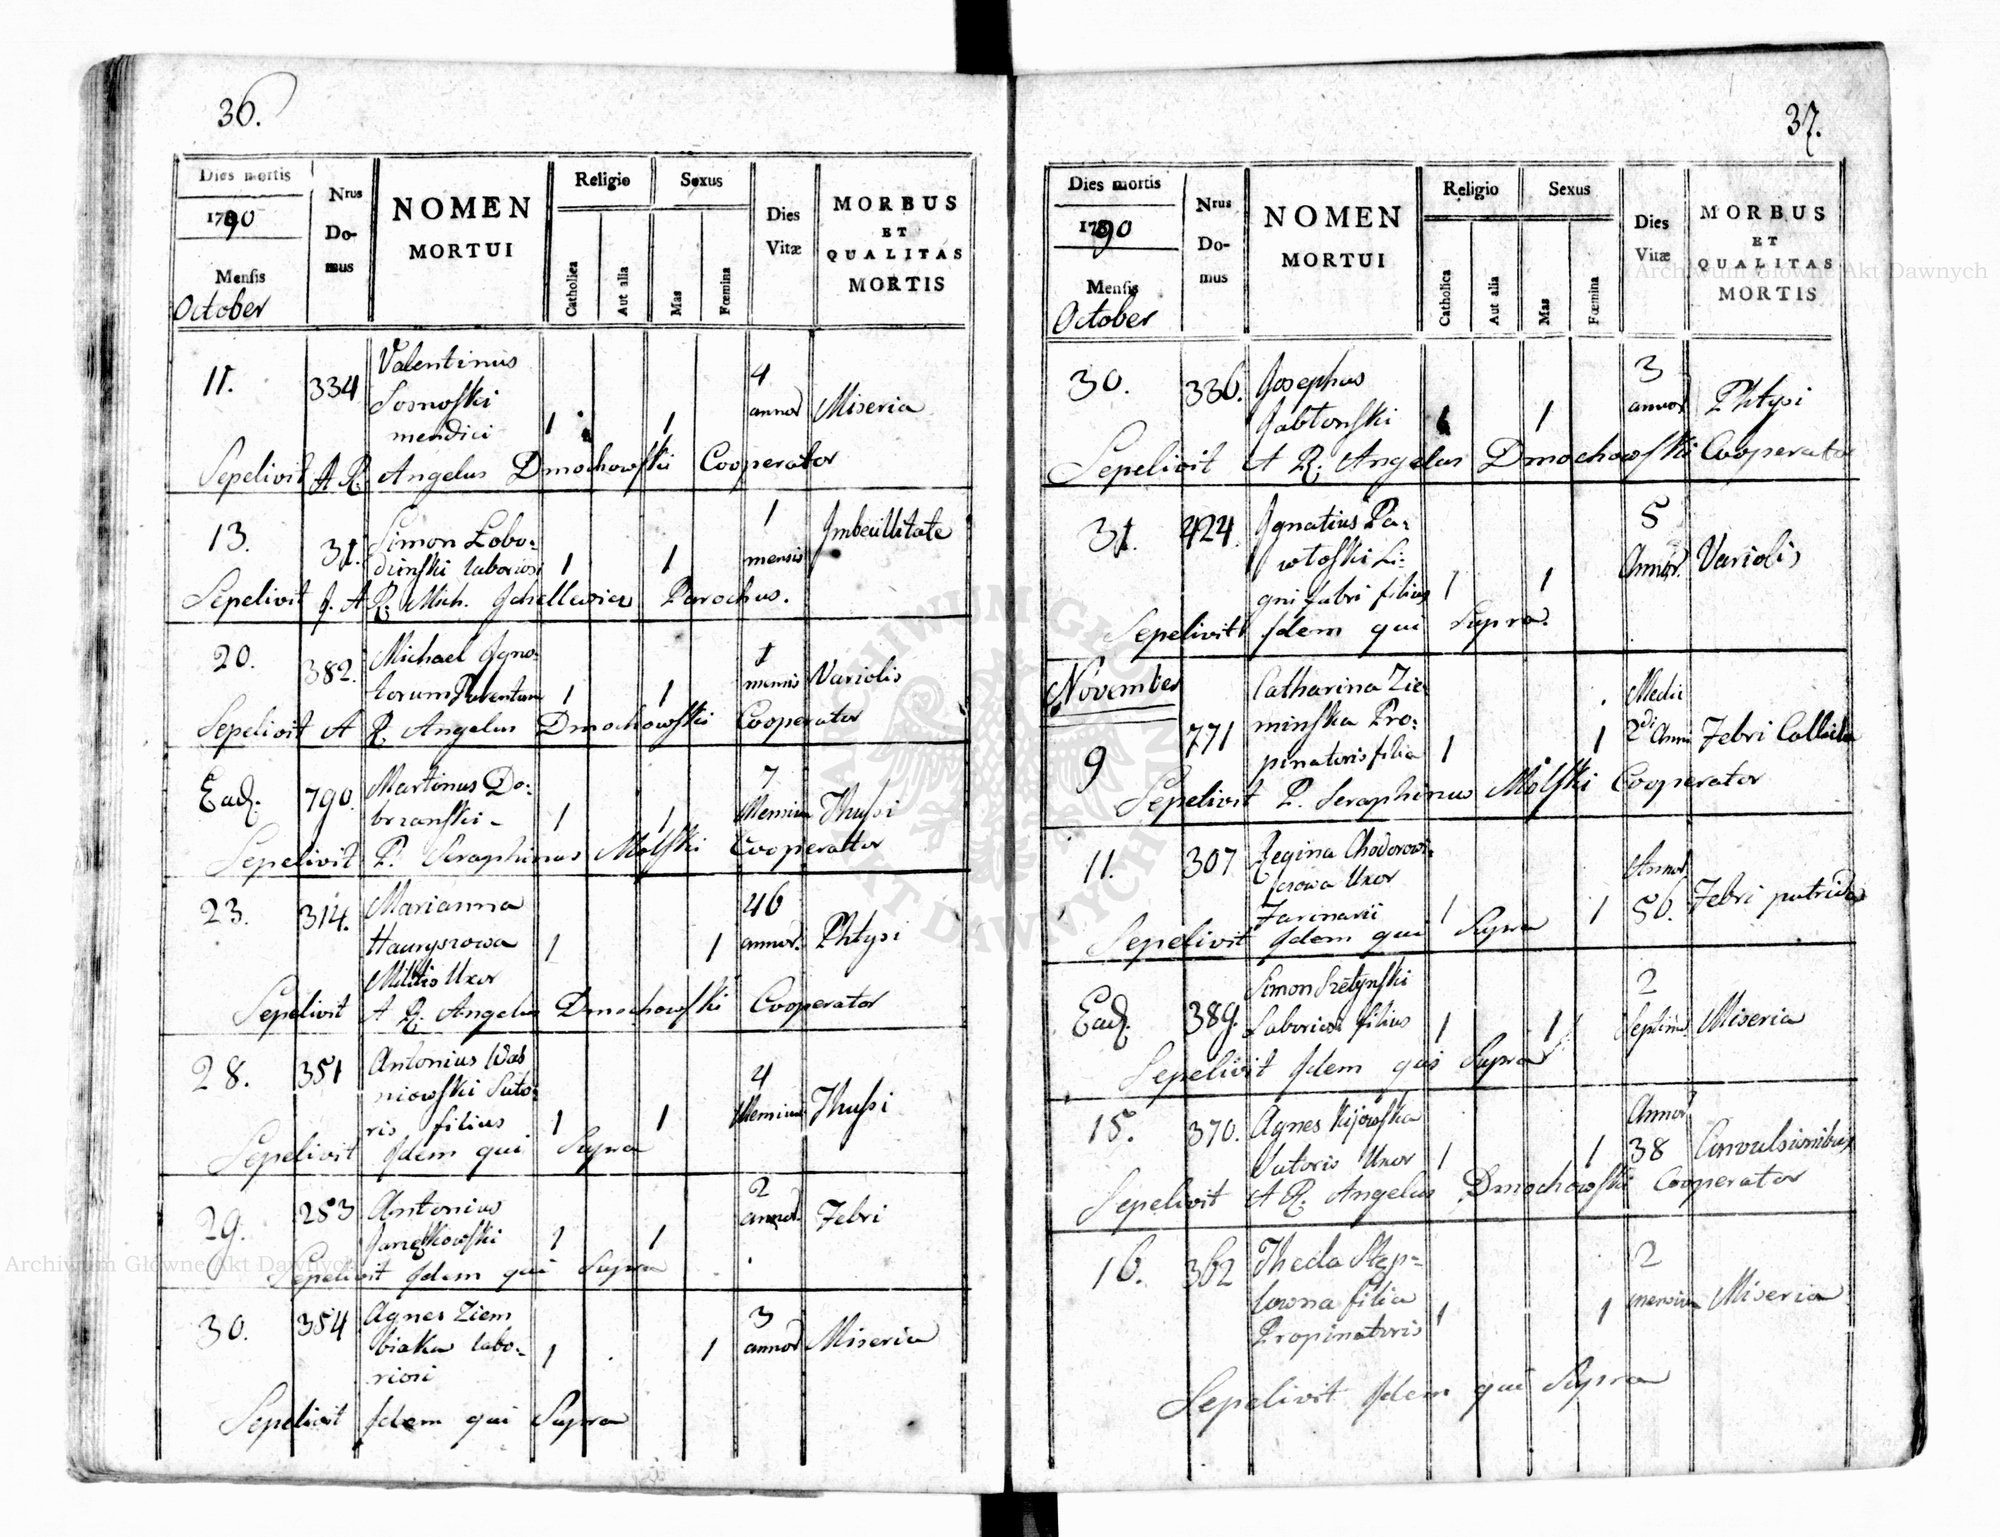 36.
Dies mortis
1790
Mensis
October
Nrus
Do-
mus
NOMEN
MORTUI
Religio
Catholica
Aut alia
Sexus
Mas
Fœmina
Dies
Vitæ
MORBUS
ET
QUALITAS
MORTIS
11. 334 Valentinus
Sosnofski
mendici 1 1 4 annor Miseria
Sepelivit A R. Angelus Dmochowski Cooperator
13. 31. Simon Łobo-
dzinski laboriosi 1 1 1 mensis Imbecillitate
Sepelivit J. A R. Mich. Parochus.
20. 382. Michael Igno-
torum Parentum 1 1 1 mensis Variolis
Sepelivit A R. Angelus Dmochowski Cooperator
Ead. 790. Martinus Do-
brzanski 1 1 7 Mensium Thussi
Sepelivit P. Seraphinus Molski Cooperator
23. 314. Marianna
Hauryszowa
Militis Uxor 1 1 46 annor. Phtysi
Sepelivit A R. Angelus Dmochowski Cooperator
28. 351 Antonius Was
niowski Suto-
ris filius 1 1 4 Mensium Thussi
Sepelivit Idem qui Supra
29. 253 Antonius
Janczkowski 1 1 2 annor. Febri
Sepelivit Idem qui Supra
30. 354 Agnes Ziem
biaka labo-
riosi 1 1 3 annor Miseria
Sepelivit Idem qui Supra
37.
Dies mortis
1790
Mensis
October
Nrus
Do-
mus
NOMEN
MORTUI
Religio
Catholica
Aut alia
Sexus
Mas
Fœmina
Dies
Vitæ
MORBUS
ET
QUALITAS
MORTIS
30. 336. Josephus
Jabłonski 1 1 3 annor Phtysi
Sepelivit A R. Angelus Dmochowski Cooperator
31. 424. Ignatius Pa-
włoski Li-
gni fabri filius 1 1 5 Annor. Variolis
Sepelivit Idem qui Supra.
November
9 771 Catharina Zie
minska Pro-
pinatoris filia 1 1 Medii 2di Anni Febri Callida
Sepelivit P. Seraphinus Molski Cooperator
11. 307 Regina Chodorowi-
czowa Uxor
Farinarii 1 1 Annor 56. Febri putrida
Sepelivit Idem qui Supra
Ead. 389. Simon
Laboriosi filius 1 1 2 Septim. Miseria
Sepelivit Idem qui Supra
15. 370. Agnes Kijowska
Sutoris Uxor 1 1 Annor 38 Convulsionibus
Sepelivit A R. Angelus Dmochowski Cooperator
16. 362 Thecla Step-
lowna filia
Propinatoris 1 1 2 mensium Miseria
Sepelivit Idem qui Supra
Archiwum Główne Akt Dawnych
Archiwum Główne Akt Dawnych
ARCHIWUM GŁÓWNE AKT DAWNYCH